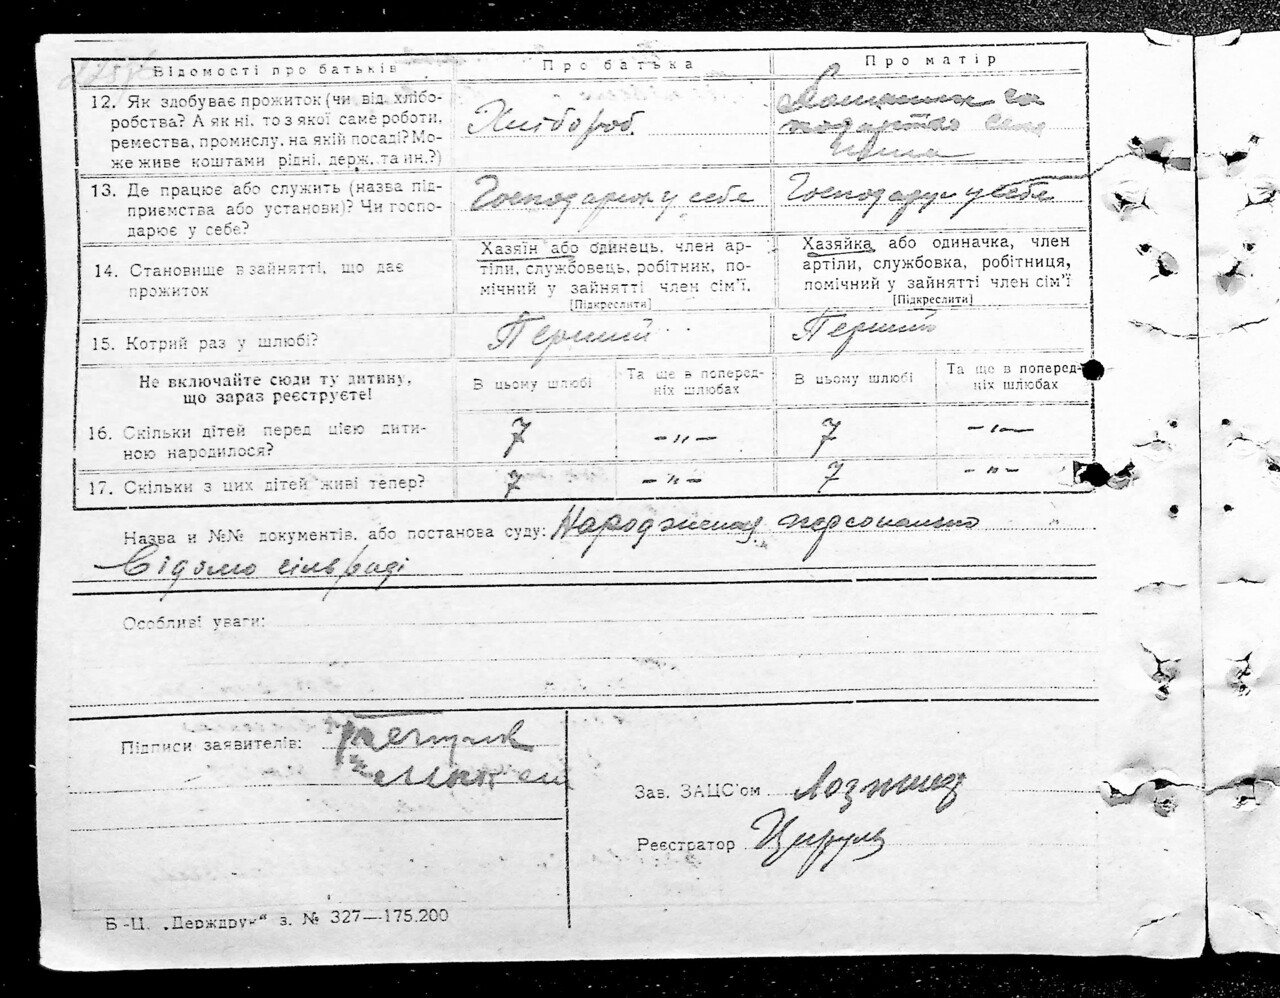 Відомості про батьків Про батька Про матір
12. Як здобуває прожиток (чи від хлібо-
робства? А як ні, то з якої саме роботи,
ремества, промислу, на якій посаді? Мо-
же живе коштами рідні, держ. та ин.?)
Хлібороб
13. Де працює або служить (назва під-
приємства або установи)? Чи госпо-
дарює у себе?
Господарює у себе Господарює у себе
14. Становище в зайнятті, що дає
прожиток
Хазяїн або одинець, член ар-
тіли, службовець, робітник, по-
мічний у зайнятті член сім'ї.
[Підкреслити]
Хазяйка або одиначка, член
артіли, службовка, робітниця,
помічний у зайнятті член сім'ї
[Підкреслити]
15. Котрий раз у шлюбі? Перший Перший
Не включайте сюди ту дитину,
що зараз реєструєте!
В цьому шлюбі Та ще в поперед-
ніх шлюбах В цьому шлюбі Та ще в поперед-
ніх шлюбах
16. Скільки дітей перед цією дити-
ною народилося?
7 -"- 7 -"-
17. Скільки з цих дітей живі тепер? 7 -"- 7 -"-
Назва и №№ документів, або постанова суду: Народження персонально
Відомо сільраді
Особливі уваги:
Підписи заявителів:
Зав. ЗАЦС'ом
Реєстратор
Б-Ц. „Держдрук“ з. № 327—175.200